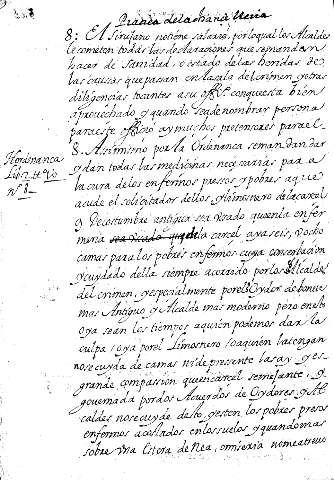 Practica de la chancilleria
8: El cirujano no tiene salario, por lo qual los Alcaldes
le cometen todas las declaraciones que se mandan
hacer de sanidad, o estado de las heridas de
las causas que pasan en la sala del crimen, y otras
diligencias tocantes a su offo. con que esta bien
aprovechado y quando se a de nombrar persona
para este officio ay muchos pretensores para el
8. Assimismo por la Ordenanca se mandan dar
y dan todas las medicinas necesarias para
la cura de los enfermos pressos y pobres, a que
acude el solicitador de los y limosnero de la carcel
y de costumbre antigua se a usado que en la enfer
meria de la carcel aya seis, u ocho
camas para los pobres enfermos cuya conserbacion
y cuydado della siempre a corrido por los Alcaldes
del crimen, y especialmente por el Oydor
mas Antiguo y Alcalde mas moderno pero en esto
o ya sean los tiempos a quien podemos dar la
culpa, o ya por el Limosnero, o a quien la tengan
no se cuyda de camas ni de presente las ay y es
grande compassion que en carcel semejante, y
governada por dos Acuerdos de Oydores y Al
caldes no se cuyde desto, y esten los pobres presos
enfermos acostados en los suelos y quando mas
sobre una Estera de Nea, o miseria no me atrevo
Hordenanca
Lib. 2 tt.
nº 8